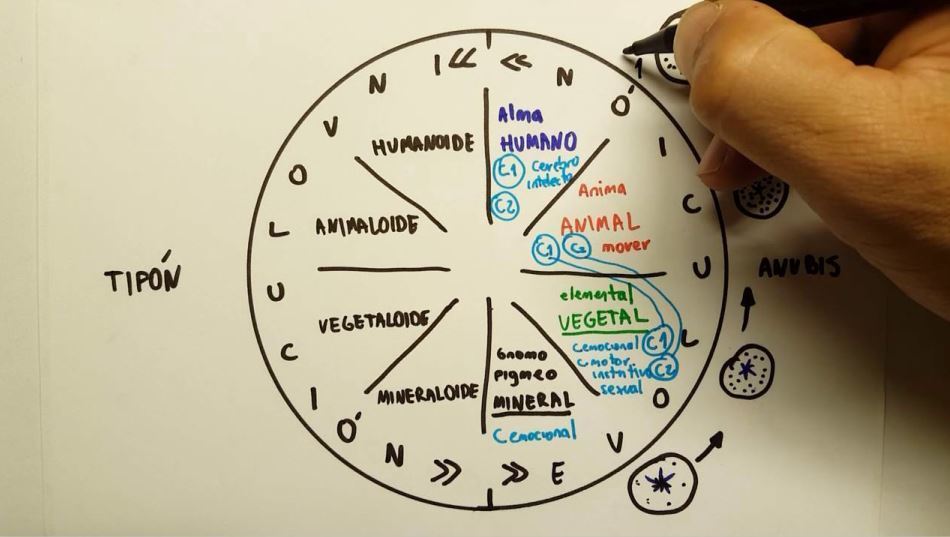 INVOLUCIÓN
EVOLUCIÓN
TIPÓN
ANUBIS
HUMANOIDE
ANIMALOIDE
VEGETALOIDE
MINERALOIDE
Alma
HUMANO
C1 cerebro
C2
Anima
ANIMAL
C1 C2 mover
elemental
VEGETAL
Cemocional C1
Cmotor
instintivo C2
sexual
Gnomo
Pigmeo
MINERAL
Cemocional
1